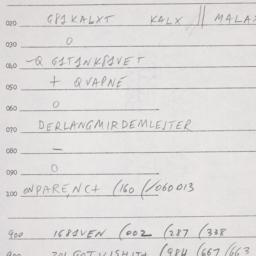 020 GPIKALXT KALX || MALAX
030 O
040 -Q GITINKPIVET
050 + QVAPNE
060 O
070 DERLANGMIRDEMLEITER
080 -
090 O
100 ONPARENC+ (160 (/060013
900 168IVEN (002 (287 (338
(984 (667 (663